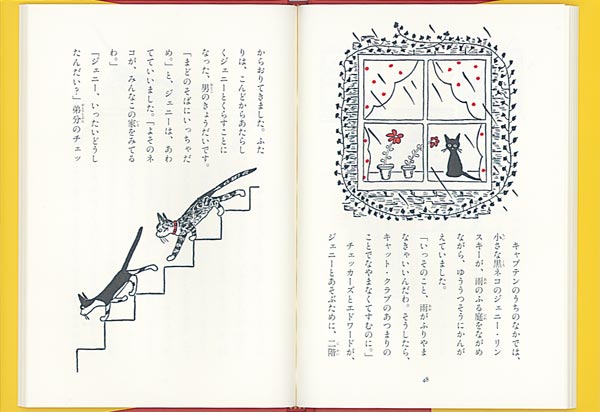 キャプテンのうちのなかでは、
小さな黒ネコのジェニー・リン
スキーが、雨のふる庭をながめ
ながら、ゆううつそうにかんが
えていました。
「いっそのこと、雨がふりやま
なきゃいいんだわ。そうしたら、
キャット・クラブのあつまりの
ことでなやまなくてすむのに。」
チェッカーズとエドワードが、
ジェニーとあそぶために、二階
48
からおりてきました。ふた
りは、こんどからあたらし
くジェニーとくらすことに
なった、男のきょうだいです。
「まどのそばにいっちゃだ
め。」と、ジェニーは、あわ
てていいました。「よそのネ
コが、みんなこの家をみてる
わ。」
「ジェニー、いったいどうし
たんだい？」弟分のチェッ